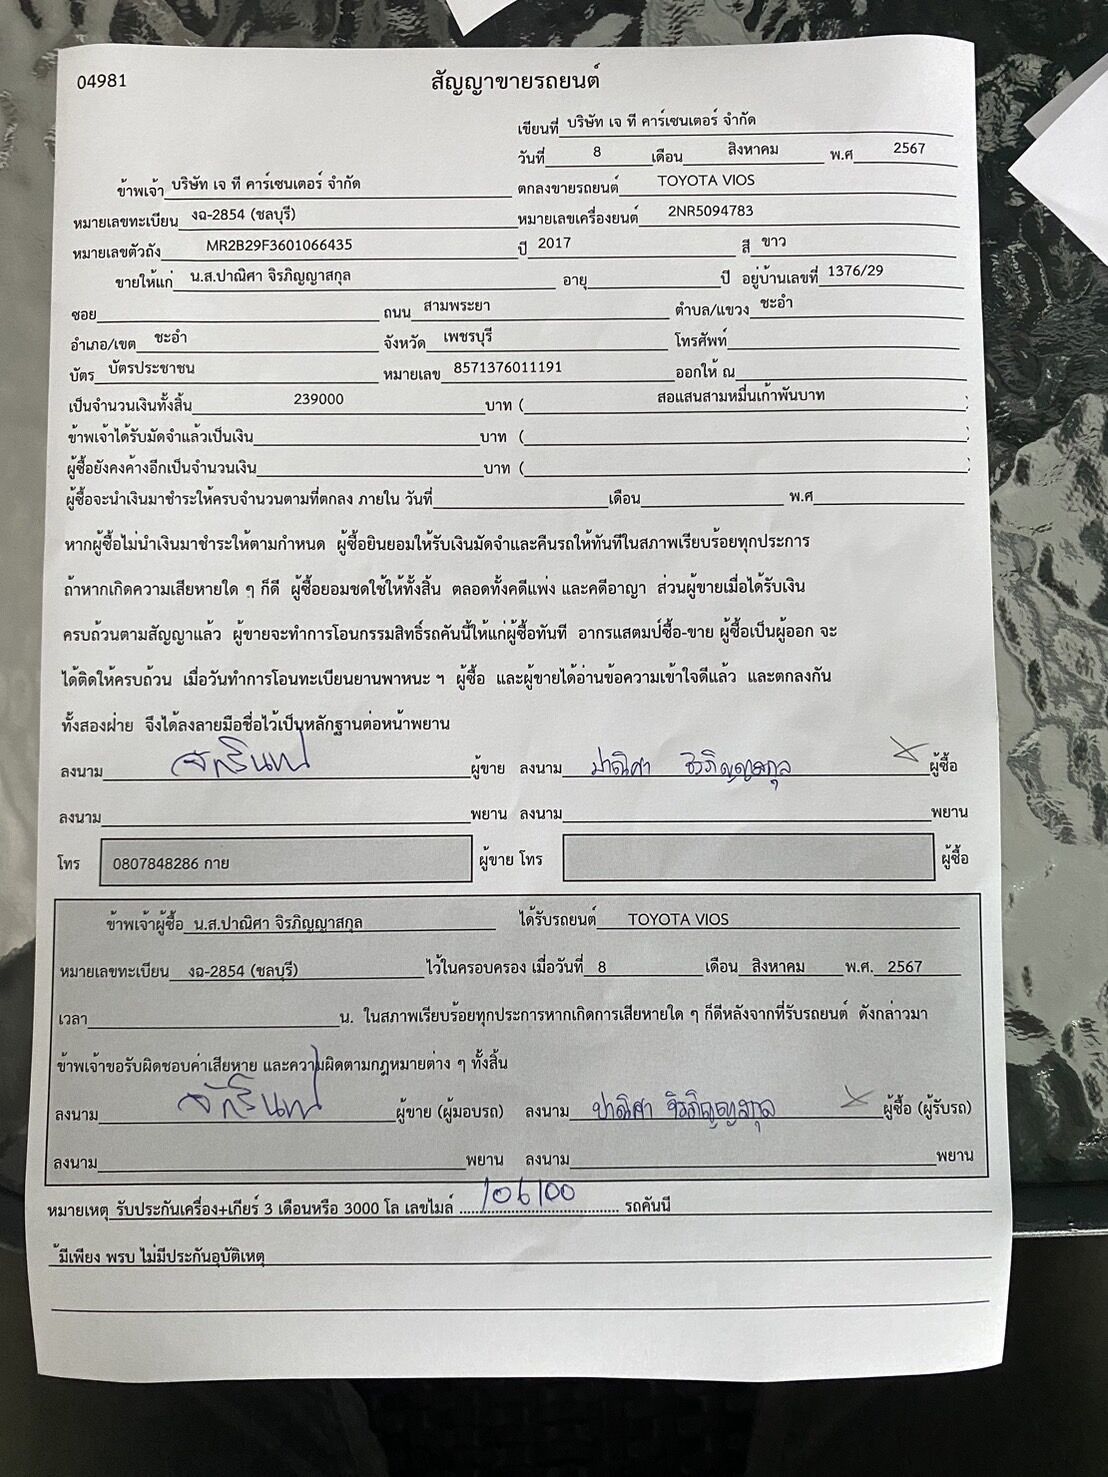 04981
สัญญาขายรถยนต์
เขียนที่ บริษัท เจ ที คาร์เซนเตอร์ จำกัด
วันที่ 8 เดือน สิงหาคม พ.ศ 2567
ข้าพเจ้า บริษัท เจ ที คาร์เซนเตอร์ จำกัด ตกลงขายรถยนต์ TOYOTA VIOS
หมายเลขทะเบียน งฉ-2854 (ชลบุรี) หมายเลขเครื่องยนต์ 2NR5094783
หมายเลขตัวถัง MR2B29F3601066435 ปี 2017 สี ขาว
ขายให้แก่ น.ส.ปาณิศา จิรภิญญาสกุล อายุ ปี อยู่บ้านเลขที่ 1376/29
ซอย ถนน สามพระยา ตำบล/แขวง ชะอำ
อำเภอ/เขต ชะอำ จังหวัด เพชรบุรี โทรศัพท์
บัตร บัตรประชาชน หมายเลข 8571376011191 ออกให้ ณ
เป็นจำนวนเงินทั้งสิ้น 239000 บาท ( สอแสนสามหมื่นเก้าพันบาท )
ข้าพเจ้าได้รับมัดจำแล้วเป็นเงิน บาท ( )
ผู้ซื้อยังคงค้างอีกเป็นจำนวนเงิน บาท ( )
ผู้ซื้อจะนำเงินมาชำระให้ครบจำนวนตามที่ตกลง ภายใน วันที่ เดือน พ.ศ
หากผู้ซื้อไม่นำเงินมาชำระให้ตามกำหนด ผู้ซื้อยินยอมให้รับเงินมัดจำและคืนรถให้ทันทีในสภาพเรียบร้อยทุกประการ
ถ้าหากเกิดความเสียหายใด ๆ ก็ดี ผู้ซื้อยอมชดใช้ให้ทั้งสิ้น ตลอดทั้งคดีแพ่ง และคดีอาญา ส่วนผู้ขายเมื่อได้รับเงิน
ครบถ้วนตามสัญญาแล้ว ผู้ขายจะทำการโอนกรรมสิทธิ์รถคันนี้ให้แก่ผู้ซื้อทันที อากรแสตมป์ซื้อ-ขาย ผู้ซื้อเป็นผู้ออก จะ
ได้ติดให้ครบถ้วน เมื่อวันทำการโอนทะเบียนยานพาหนะ ฯ ผู้ซื้อ และผู้ขายได้อ่านข้อความเข้าใจดีแล้ว และตกลงกัน
ทั้งสองฝ่าย จึงได้ลงลายมือชื่อไว้เป็นหลักฐานต่อหน้าพยาน
ลงนาม จักรินทร์ ผู้ขาย ลงนาม ปาณิศา จิรภิญญาสกุล ผู้ซื้อ
ลงนาม พยาน ลงนาม พยาน
โทร 0807848286 กาย ผู้ขาย โทร ผู้ซื้อ
ข้าพเจ้าผู้ซื้อ น.ส.ปาณิศา จิรภิญญาสกุล ได้รับรถยนต์ TOYOTA VIOS
หมายเลขทะเบียน งฉ-2854 (ชลบุรี) ไว้ในครอบครอง เมื่อวันที่ 8 เดือน สิงหาคม พ.ศ. 2567
เวลา น. ในสภาพเรียบร้อยทุกประการหากเกิดการเสียหายใด ๆ ก็ดีหลังจากที่รับรถยนต์ ดังกล่าวมา
ข้าพเจ้าขอรับผิดชอบค่าเสียหาย และความผิดตามกฎหมายต่าง ๆ ทั้งสิ้น
ลงนาม จักรินทร์ ผู้ขาย (ผู้มอบรถ) ลงนาม ปาณิศา จิรภิญญาสกุล ผู้ซื้อ (ผู้รับรถ)
ลงนาม พยาน ลงนาม พยาน
หมายเหตุ รับประกันเครื่อง+เกียร์ 3 เดือนหรือ 3000 โล เลขไมล์ 106100 รถคันนี
้มีเพียง พรบ ไม่มีประกันอุบัติเหตุ